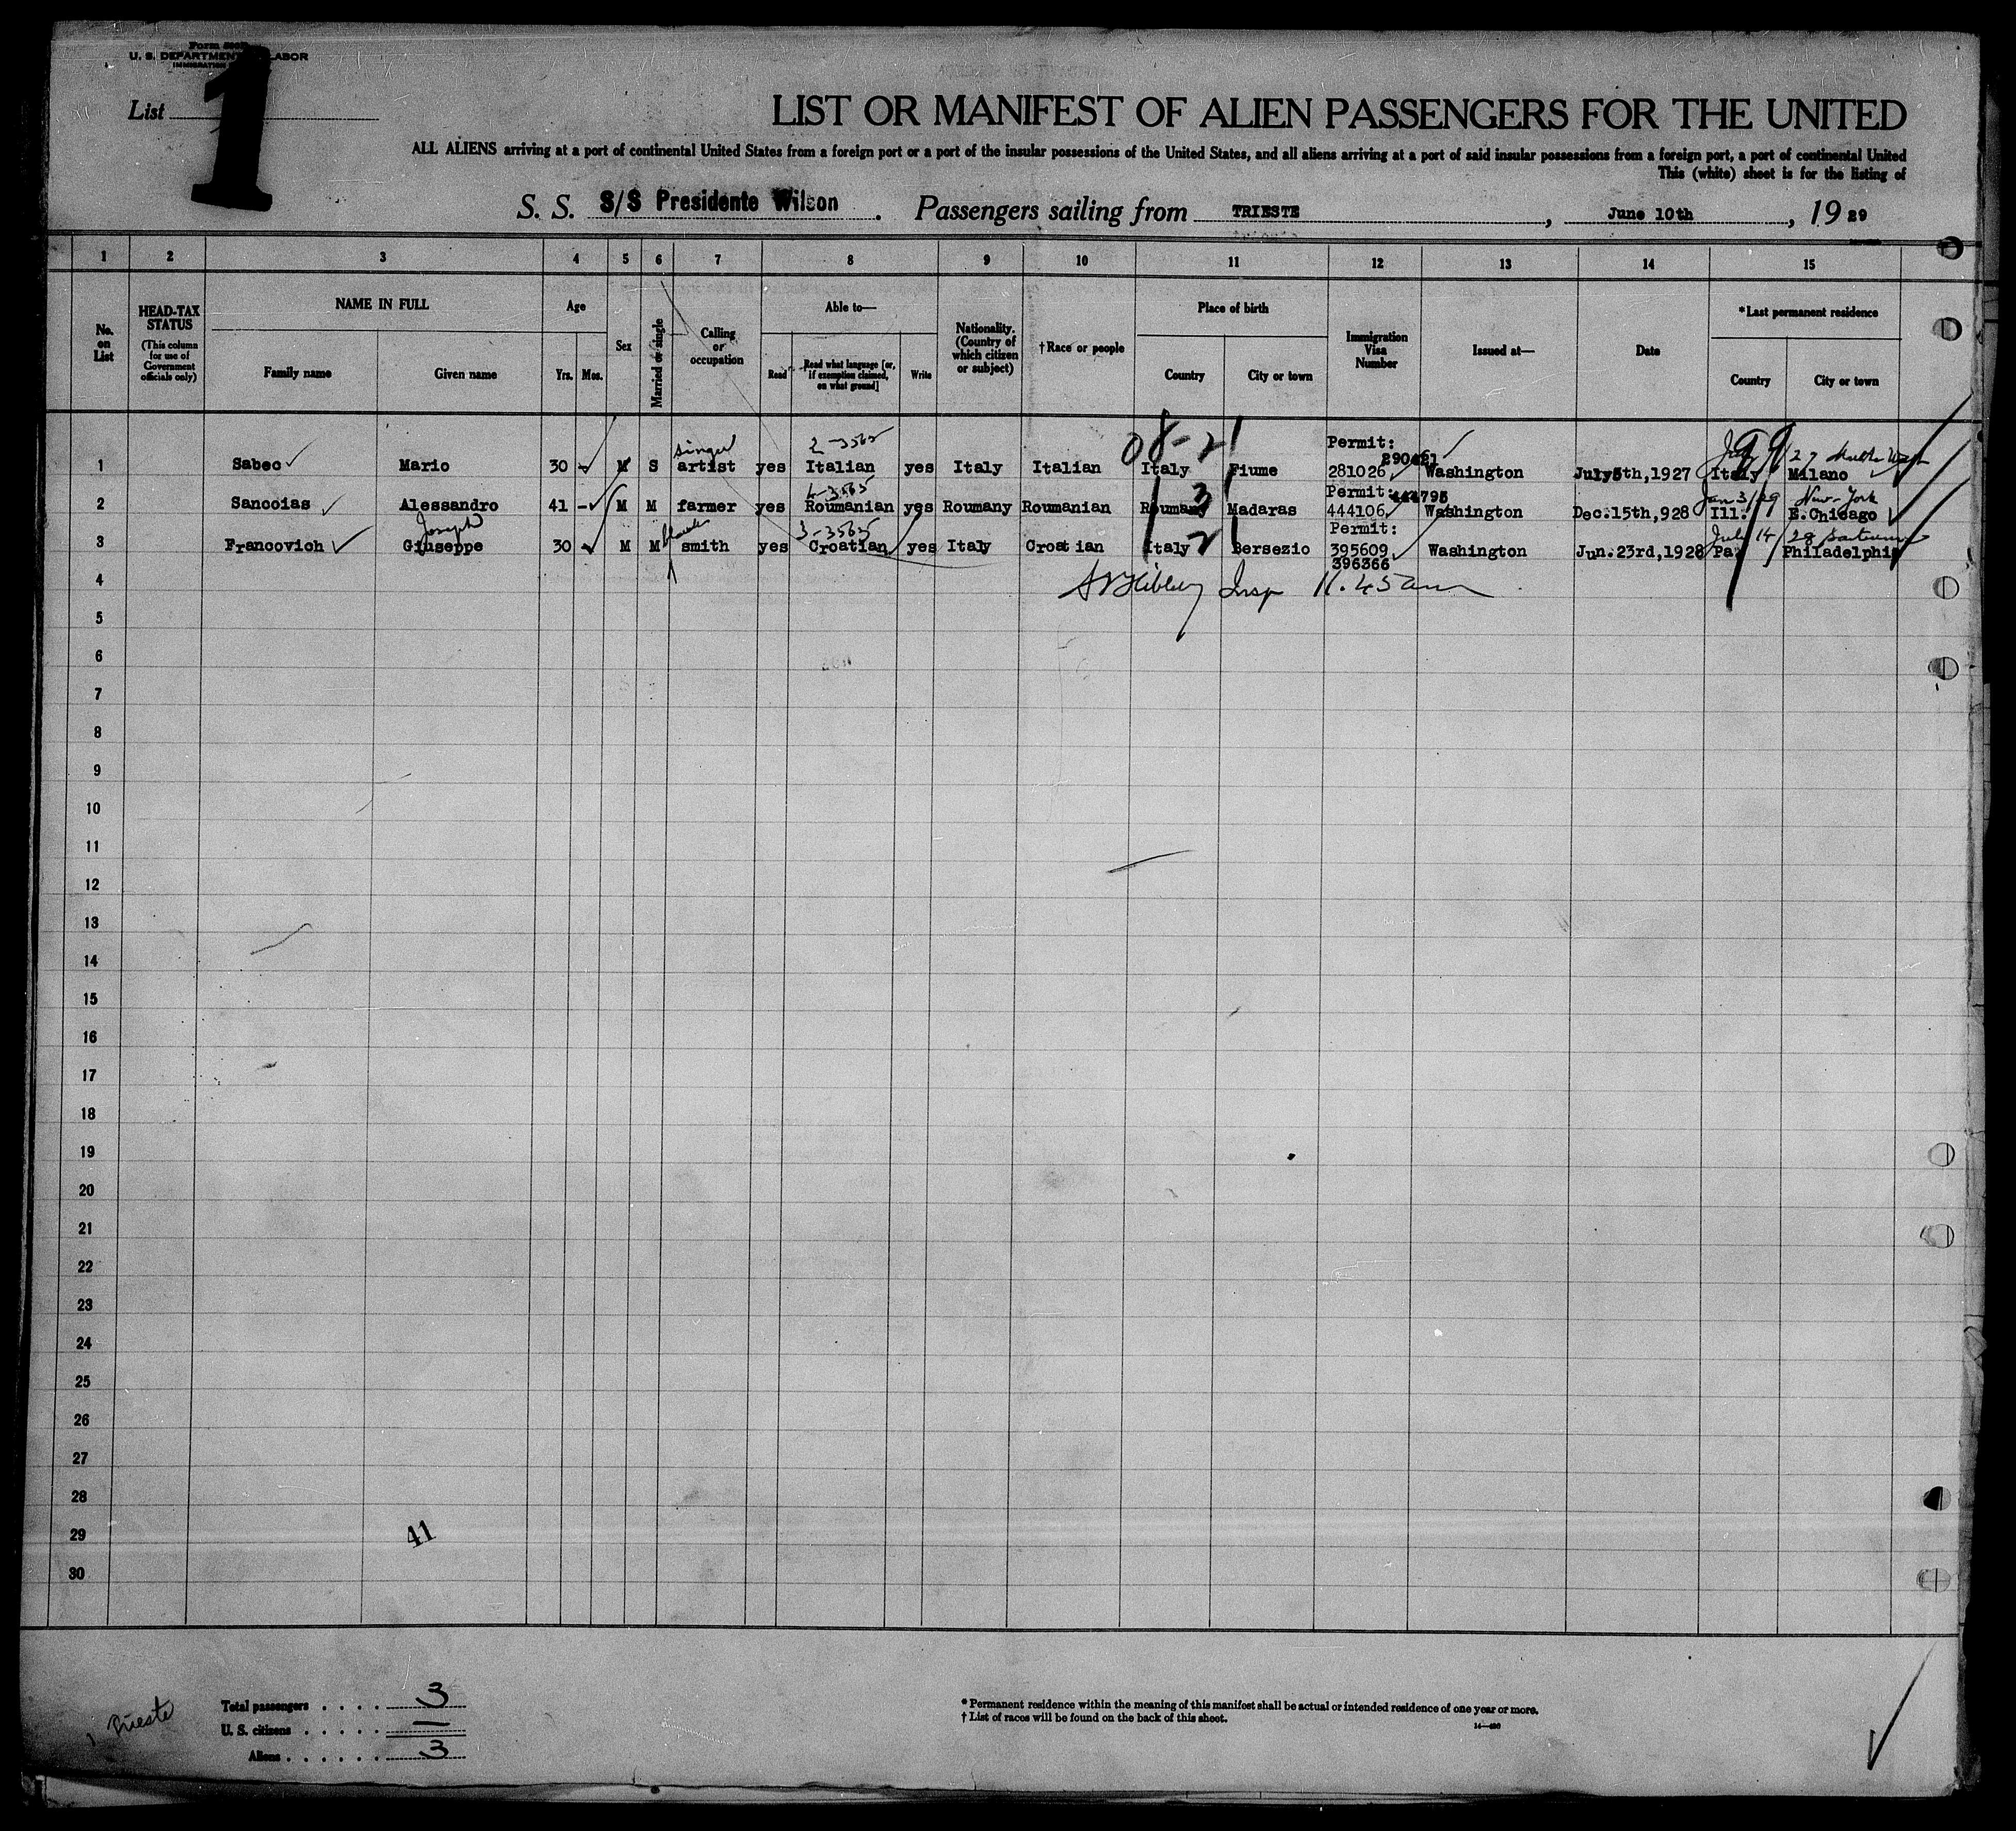 U. S. DEPARTMENT LABOR
List 1
LIST OR MANIFEST OF ALIEN PASSENGERS FOR THE UNITED
ALL ALIENS arriving at a port of continental United States from a foreign port or a port of the insular possessions of the United States, and all aliens arriving at a port of said insular possessions from a foreign port, a port of continental United
This (white) sheet is for the listing of
S. S. S/S Presidente Wilson. Passengers sailing from TRIESTE, June 10th, 19 29
1 2 3 4 5 6 7 8 9 10 11 12 13 14 15
No. on List
HEAD-TAX STATUS
(This column for use of Government officials only)
NAME IN FULL
Family name Given name
Age
Yrs. Mos.
Sex
Married or single
Calling or occupation
Able to—
Read Read what language [or, if exemption claimed, on what ground] Write
Nationality. (Country of which citizen or subject)
†Race or people
Place of birth
Country City or town
Immigration Visa Number
Issued at—
Date
*Last permanent residence
Country City or town
singer 2-3565 08-21 Permit: 290421
1 Sabec Mario 30 - M S artist yes Italian yes Italy Italian Italy Fiume 281026 Washington July5th,1927 Italy Milano
4-3565 3 Permit: 444795 Jan 3/29 New-York
2 Sancoias Alessandro 41 - M M farmer yes Roumanian yes Roumany Roumanian Roumany Madaras 444106 Washington Dec.15th,928 Ill. E.Chicago
Joseph 3-3565 2 Permit: July 14/28
3 Francovich Giuseppe 30 - M M smith yes Croatian yes Italy Croatian Italy Bersezio 395609 Washington Jun.23rd,1928 Pa Philadelphia
396366
4 Insp 11.45 am
5
6
7
8
9
10
11
12
13
14
15
16
17
18
19
20
21
22
23
24
25
26
27
28
29 41
30
Trieste
Total passengers . . . . 3
U. S. citizens . . . . . —
Aliens . . . . . . 3
* Permanent residence within the meaning of this manifest shall be actual or intended residence of one year or more.
† List of races will be found on the back of this sheet.